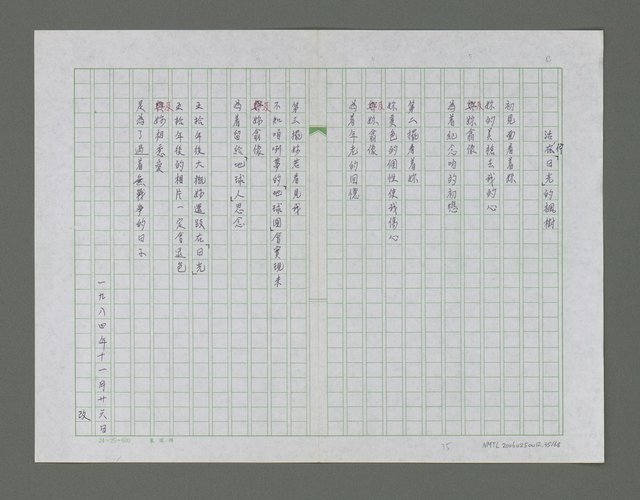 活在「日光」的楓樹
初見面看着妳
妳的美積去我的心
與妳翕像
為着紀念咱的初戀
第二擺看着妳
妳變色的個性使我傷心
與妳翕像
為着年老的回憶
第三擺妳若看見我
不知咱咧夢的「地球國」會實現未
與妳翕像
為着留給「地球人」思念
五拾年後大概妳還踮在「日光」
五拾年後的相片一定會退色
與妳相愛
是為了過着無戰爭的日子
一九八四年十一月廿六日
改
24×25=600
35
NMTL20060250012.35/68